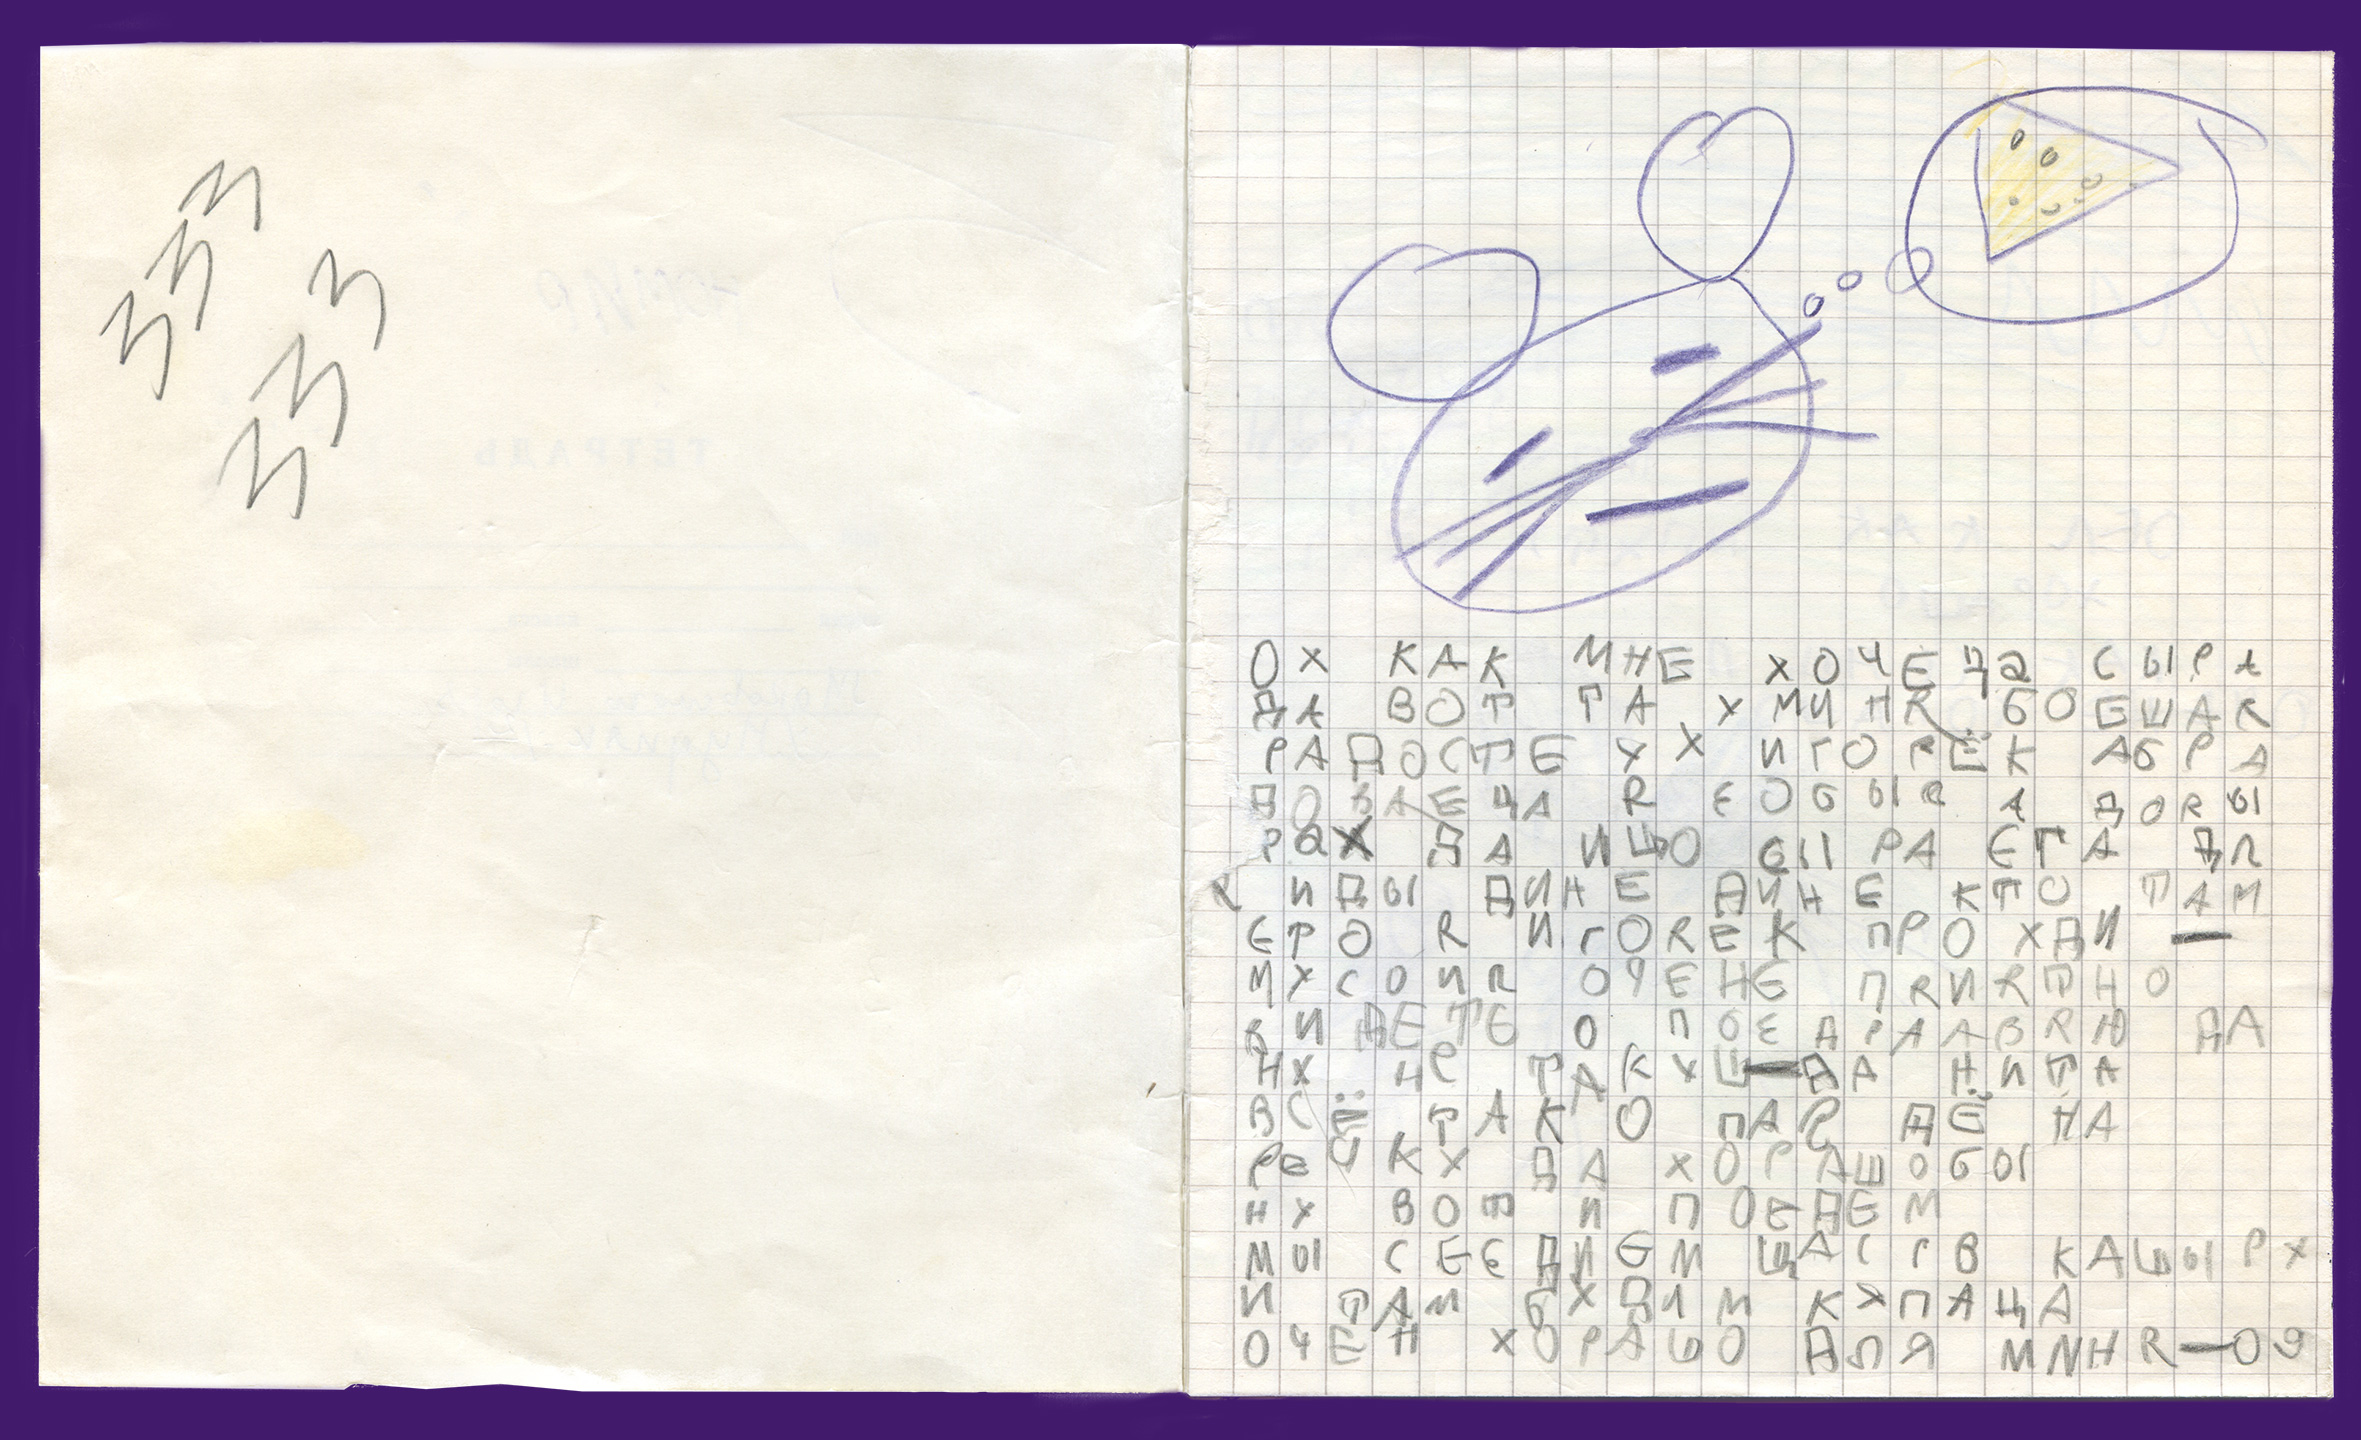 ЗЗЗ
ЗЗЗ
ОХ КАК МНЕ ХОЧЕЦА СЫРА
ДА ВОТ ТА У МИНЯ БОЕШАЯ
РАДОСТЕ УХ ИГОРЁК АБРА
ДОВАЕЦА Я ЕОБЫЯ А ДОЯЫ
ДА ИЩО СЫРА ЕГА ДЛ
Я ИДЫ ДИНЕ ДИНЕ КТО ТАМ
ЕТО Я ИГОЯЕК ПРОХДИ —
МУСОИЯ ОЧЕНЕ ПЯИЯТНО
ВИДЕТЕ О ПОЕ ДА
НУ НЕ ТАКУЩ—ДА НИТА
ВСЁ ТАКО ПАР ДЁ НА
РЕЧКУ ДА ХОРАШО БЫ
НУ ВОТ И ПОЕДЕМ
МЫ СЕЕДИЕМ ЩАС ГВ КАШЫРУ
И ТАМ БУДИМ КУПАЦА
ОЧЕН ХОРАШО ДЛЯ МNНЯ—ОЭ